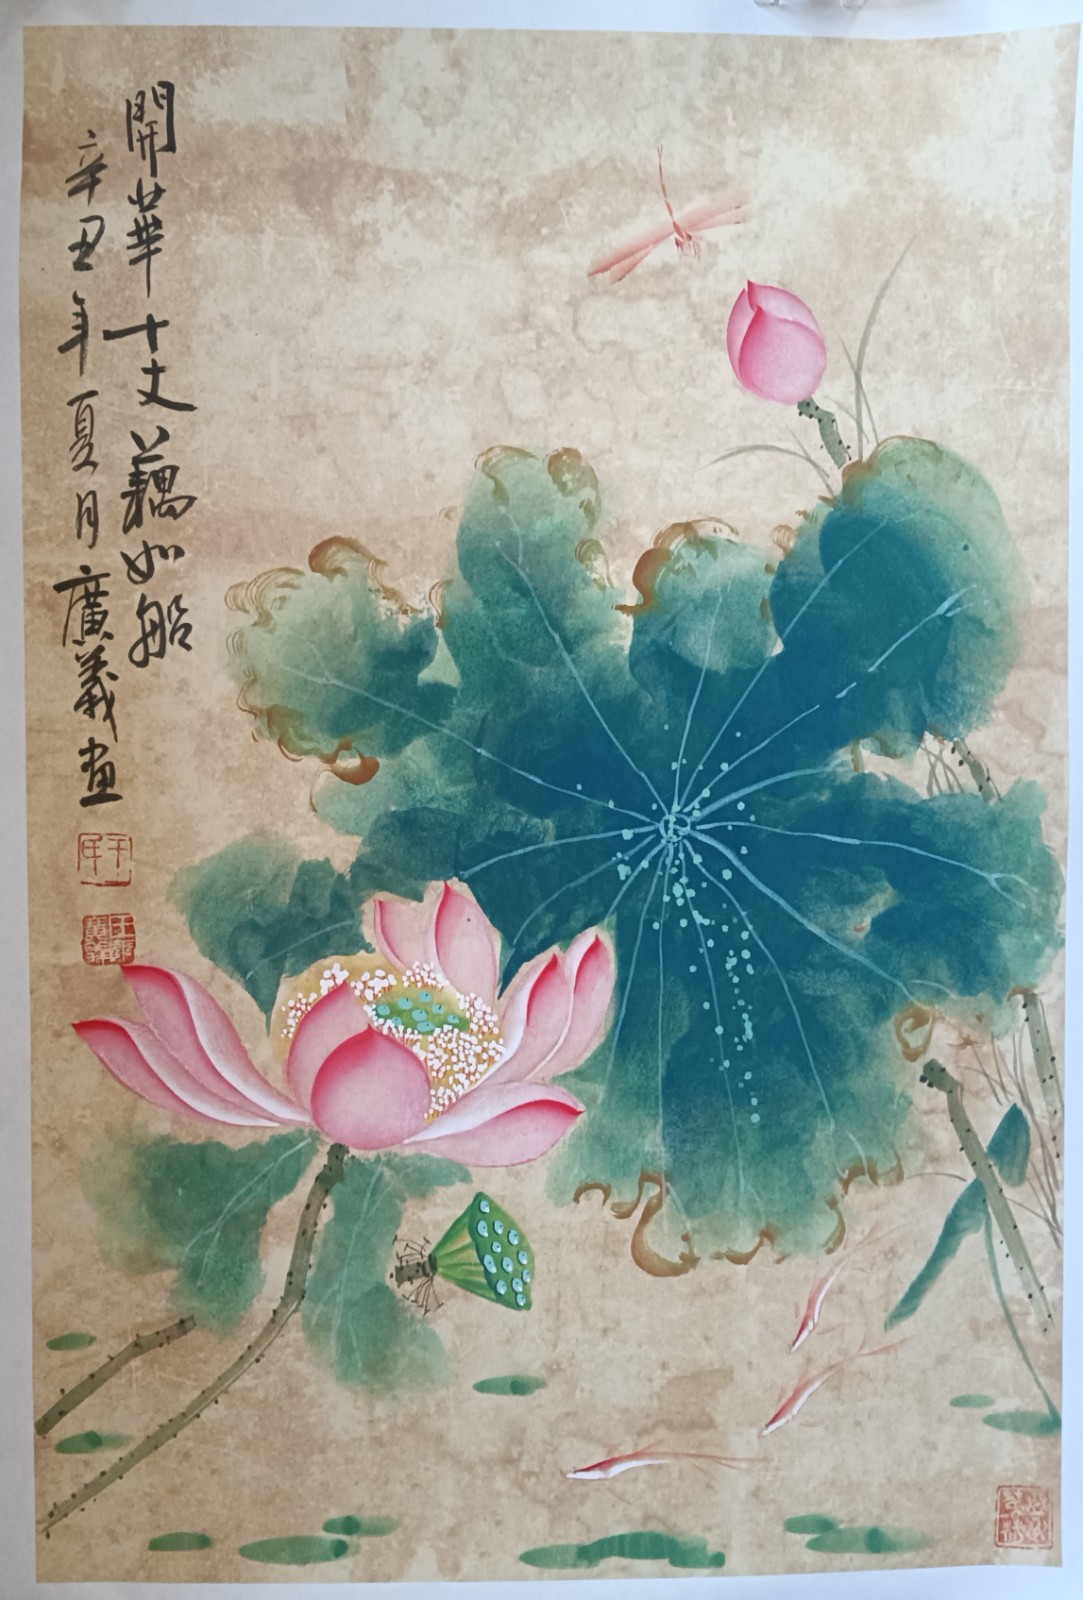 開華十丈藕如船
辛丑年夏月廣義畫